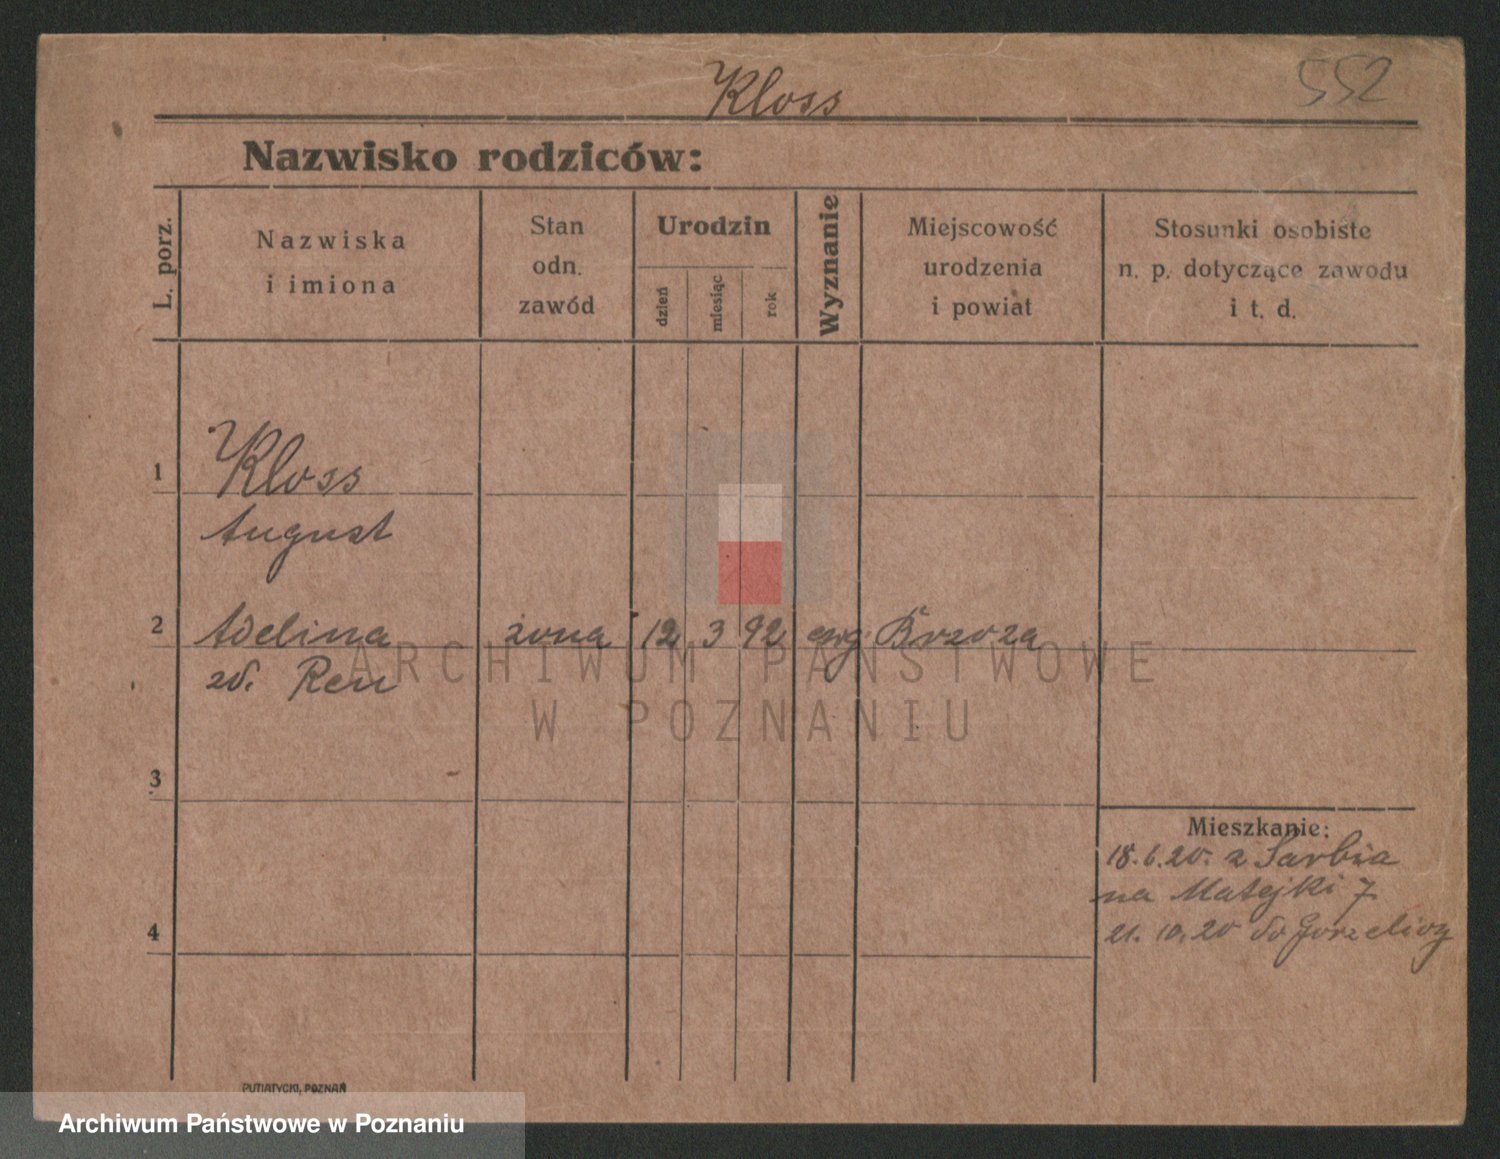 Kloss
552
Nazwisko rodziców:
L. porz.
Nazwiska
i imiona
Stan
odn.
zawód
Urodzin
dzień
miesiąc
rok
Wyznanie
Miejscowość
urodzenia
i powiat
Stosunki osobiste
n. p. dotyczące zawodu
i t. d.
1
Kloss
August
2
Adelina żona 12 3 92 Brzoza
zd. Reu
3
4
Mieszkanie:
18.6.20. z Sarbia
na Matejki 7
21.10.20 do
PUTIATYCKI, POZNAŃ
ARCHIWUM PAŃSTWOWE
W POZNANIU
Archiwum Państwowe w Poznaniu